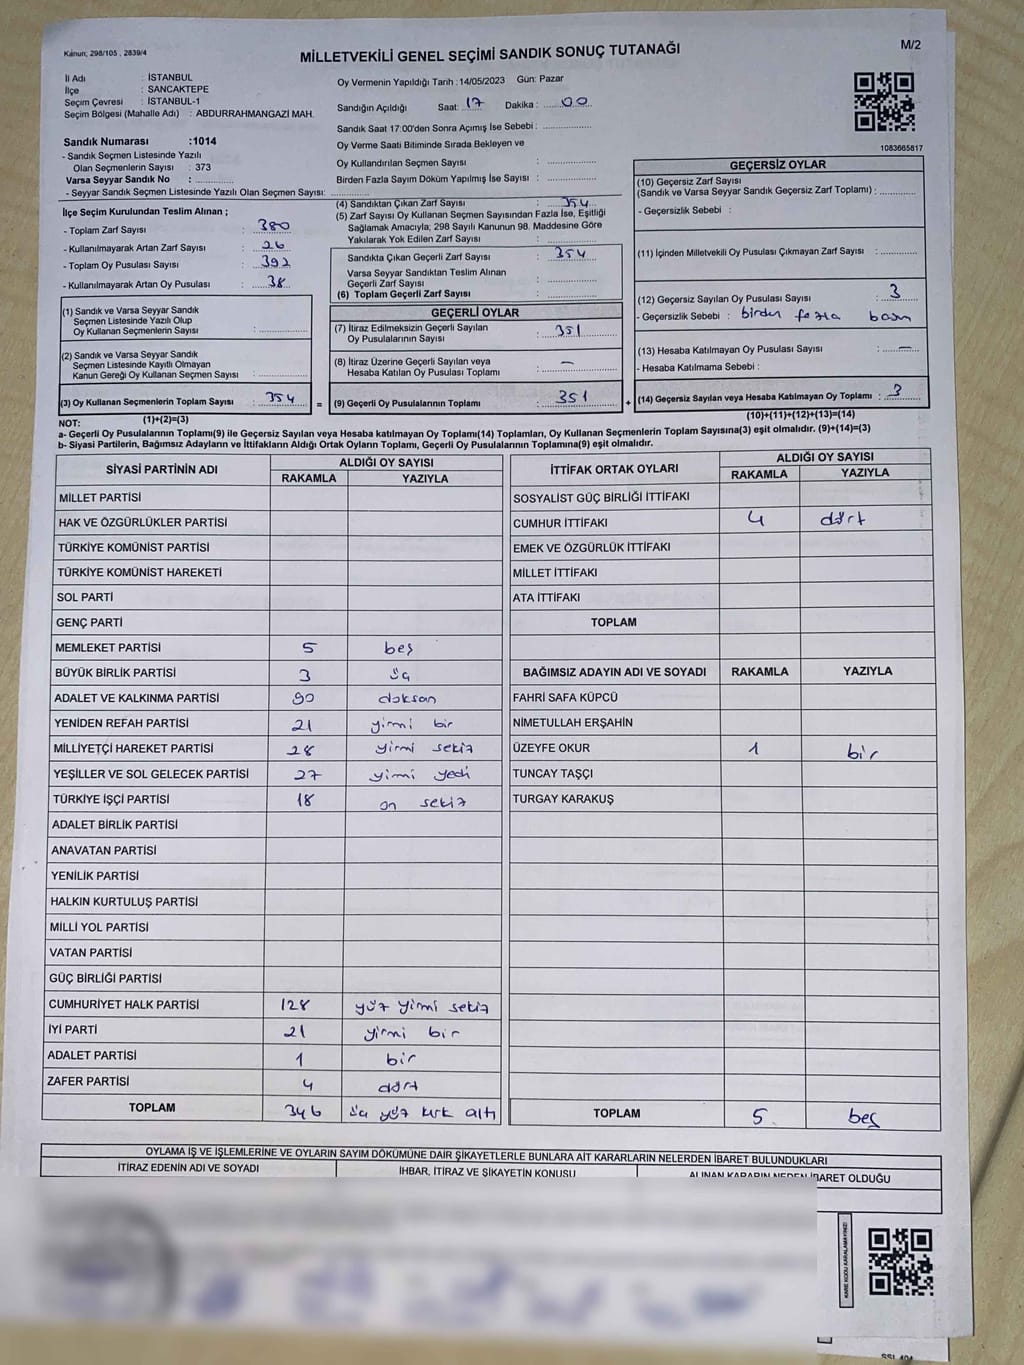 Kanun; 298/105 , 2839/4
MİLLETVEKİLİ GENEL SEÇİMİ SANDIK SONUÇ TUTANAĞI
M/2
İl Adı : İSTANBUL
İlçe : SANCAKTEPE
Seçim Çevresi : İSTANBUL-1
Seçim Bölgesi (Mahalle Adı) : ABDURRAHMANGAZİ MAH.
Sandık Numarası :1014
- Sandık Seçmen Listesinde Yazılı
Olan Seçmenlerin Sayısı : 373
Varsa Seyyar Sandık No : ............
- Seyyar Sandık Seçmen Listesinde Yazılı Olan Seçmen Sayısı: ............
Oy Vermenin Yapıldığı Tarih : 14/05/2023 Gün: Pazar
Sandığın Açıldığı Saat: 17 Dakika : 00
Sandık Saat 17:00'den Sonra Açımış İse Sebebi : ............
Oy Verme Saati Bitiminde Sırada Bekleyen ve
Oy Kullandırılan Seçmen Sayısı : ............
Birden Fazla Sayım Döküm Yapılmış İse Sayısı : ............
1083665817
İlçe Seçim Kurulundan Teslim Alınan ;
- Toplam Zarf Sayısı : 380
- Kullanılmayarak Artan Zarf Sayısı : 26
- Toplam Oy Pusulası Sayısı : 392
- Kullanılmayarak Artan Oy Pusulası : 38
(1) Sandık ve Varsa Seyyar Sandık
Seçmen Listesinde Yazılı Olup
Oy Kullanan Seçmenlerin Sayısı : ............
(2) Sandık ve Varsa Seyyar Sandık
Seçmen Listesinde Kayıtlı Olmayan
Kanun Gereği Oy Kullanan Seçmen Sayısı : ............
(3) Oy Kullanan Seçmenlerin Toplam Sayısı : 354 =
(1)+(2)=(3)
(4) Sandıktan Çıkan Zarf Sayısı : 354
(5) Zarf Sayısı Oy Kullanan Seçmen Sayısından Fazla İse, Eşitliği
Sağlamak Amacıyla; 298 Sayılı Kanunun 98. Maddesine Göre
Yakılarak Yok Edilen Zarf Sayısı : ............
Sandıkta Çıkan Geçerli Zarf Sayısı : 354
Varsa Seyyar Sandıktan Teslim Alınan
Geçerli Zarf Sayısı : ............
(6) Toplam Geçerli Zarf Sayısı : ............
GEÇERLİ OYLAR
(7) İtiraz Edilmeksizin Geçerli Sayılan
Oy Pusulalarının Sayısı : 351
(8) İtiraz Üzerine Geçerli Sayılan veya
Hesaba Katılan Oy Pusulası Toplamı : –
(9) Geçerli Oy Pusulalarının Toplamı : 351 +
GEÇERSİZ OYLAR
(10) Geçersiz Zarf Sayısı
(Sandık ve Varsa Seyyar Sandık Geçersiz Zarf Toplamı) : ............
- Geçersizlik Sebebi :
(11) İçinden Milletvekili Oy Pusulası Çıkmayan Zarf Sayısı : ............
(12) Geçersiz Sayılan Oy Pusulası Sayısı : 3
- Geçersizlik Sebebi : birden fazla basım
(13) Hesaba Katılmayan Oy Pusulası Sayısı : –
- Hesaba Katılmama Sebebi :
(14) Geçersiz Sayılan veya Hesaba Katılmayan Oy Toplamı : 3
(10)+(11)+(12)+(13)=(14)
NOT:
a- Geçerli Oy Pusulalarının Toplamı(9) ile Geçersiz Sayılan veya Hesaba katılmayan Oy Toplamı(14) Toplamları, Oy Kullanan Seçmenlerin Toplam Sayısına(3) eşit olmalıdır. (9)+(14)=(3)
b- Siyasi Partilerin, Bağımsız Adayların ve İttifakların Aldığı Ortak Oyların Toplamı, Geçerli Oy Pusulalarının Toplamına(9) eşit olmalıdır.
SİYASİ PARTİNİN ADI ALDIĞI OY SAYISI
RAKAMLA YAZIYLA
MİLLET PARTİSİ
HAK VE ÖZGÜRLÜKLER PARTİSİ
TÜRKİYE KOMÜNİST PARTİSİ
TÜRKİYE KOMÜNİST HAREKETİ
SOL PARTİ
GENÇ PARTİ
MEMLEKET PARTİSİ 5 beş
BÜYÜK BİRLİK PARTİSİ 3 üç
ADALET VE KALKINMA PARTİSİ 90 doksan
YENİDEN REFAH PARTİSİ 21 yirmi bir
MİLLİYETÇİ HAREKET PARTİSİ 28 yirmi sekiz
YEŞİLLER VE SOL GELECEK PARTİSİ 27 yirmi yedi
TÜRKİYE İŞÇİ PARTİSİ 18 on sekiz
ADALET BİRLİK PARTİSİ
ANAVATAN PARTİSİ
YENİLİK PARTİSİ
HALKIN KURTULUŞ PARTİSİ
MİLLİ YOL PARTİSİ
VATAN PARTİSİ
GÜÇ BİRLİĞİ PARTİSİ
CUMHURİYET HALK PARTİSİ 128 yüz yirmi sekiz
İYİ PARTİ 21 yirmi bir
ADALET PARTİSİ 1 bir
ZAFER PARTİSİ 4 dört
TOPLAM 346 üç yüz kırk altı
İTTİFAK ORTAK OYLARI ALDIĞI OY SAYISI
RAKAMLA YAZIYLA
SOSYALİST GÜÇ BİRLİĞİ İTTİFAKI
CUMHUR İTTİFAKI 4 dört
EMEK VE ÖZGÜRLÜK İTTİFAKI
MİLLET İTTİFAKI
ATA İTTİFAKI
TOPLAM
BAĞIMSIZ ADAYIN ADI VE SOYADI RAKAMLA YAZIYLA
FAHRİ SAFA KÜPCÜ
NİMETULLAH ERŞAHİN
ÜZEYFE OKUR 1 bir
TUNCAY TAŞÇI
TURGAY KARAKUŞ
TOPLAM 5 beş
OYLAMA İŞ VE İŞLEMLERİNE VE OYLARIN SAYIM DÖKÜMÜNE DAİR ŞİKAYETLERLE BUNLARA AİT KARARLARIN NELERDEN İBARET BULUNDUKLARI
İTİRAZ EDENİN ADI VE SOYADI İHBAR, İTİRAZ VE ŞİKAYETİN KONUSU ALINAN KARARIN NEDEN İBARET OLDUĞU
KARE KODU KARALAMAYINIZ!